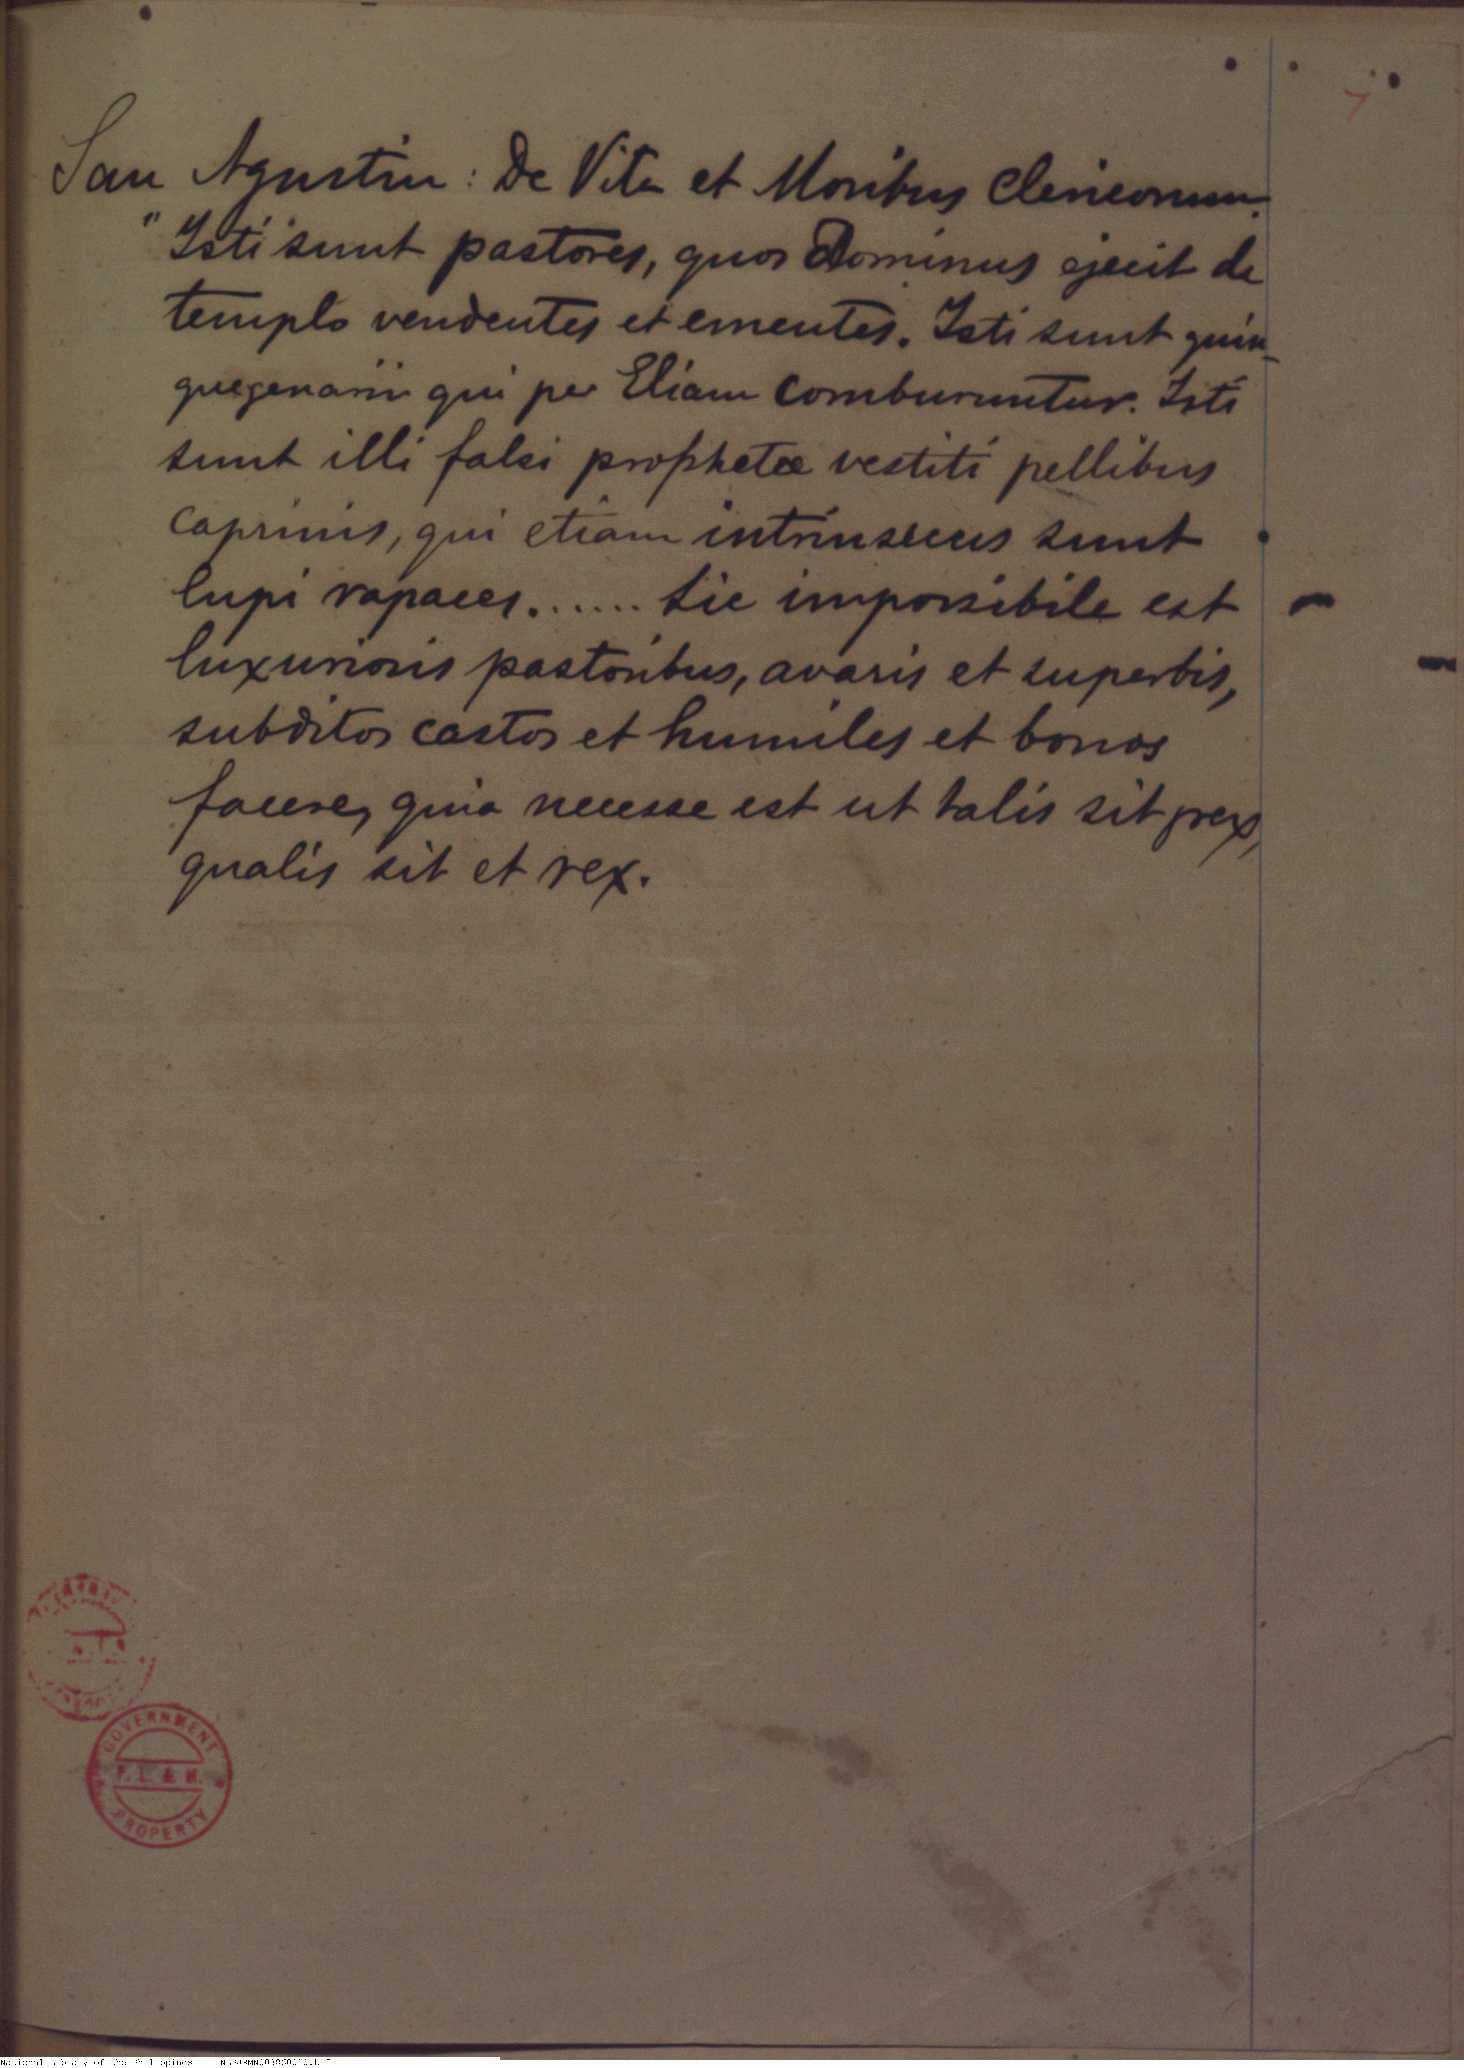 7
San Agustin: De Vita et Moribus Clericorum.
"Isti sunt pastores, quos Dominus ejecit de
templo vendentes et ementes. Isti sunt quin-
quegenarii qui per Eliam comburuntur. Isti
sunt illi falsi prophetæ vestiti pellibus
caprinis, qui etiam intrinsecus sunt
lupi rapaces....... Sic impossibile est
luxuriosis pastoribus, avaris et superbis,
subditos castos et humiles et bonos
facere, quia necesse est ut talis sit grex,
qualis sit et rex.
GOVERNMENT
P. L. & M.
PROPERTY
National Library of the Philippines